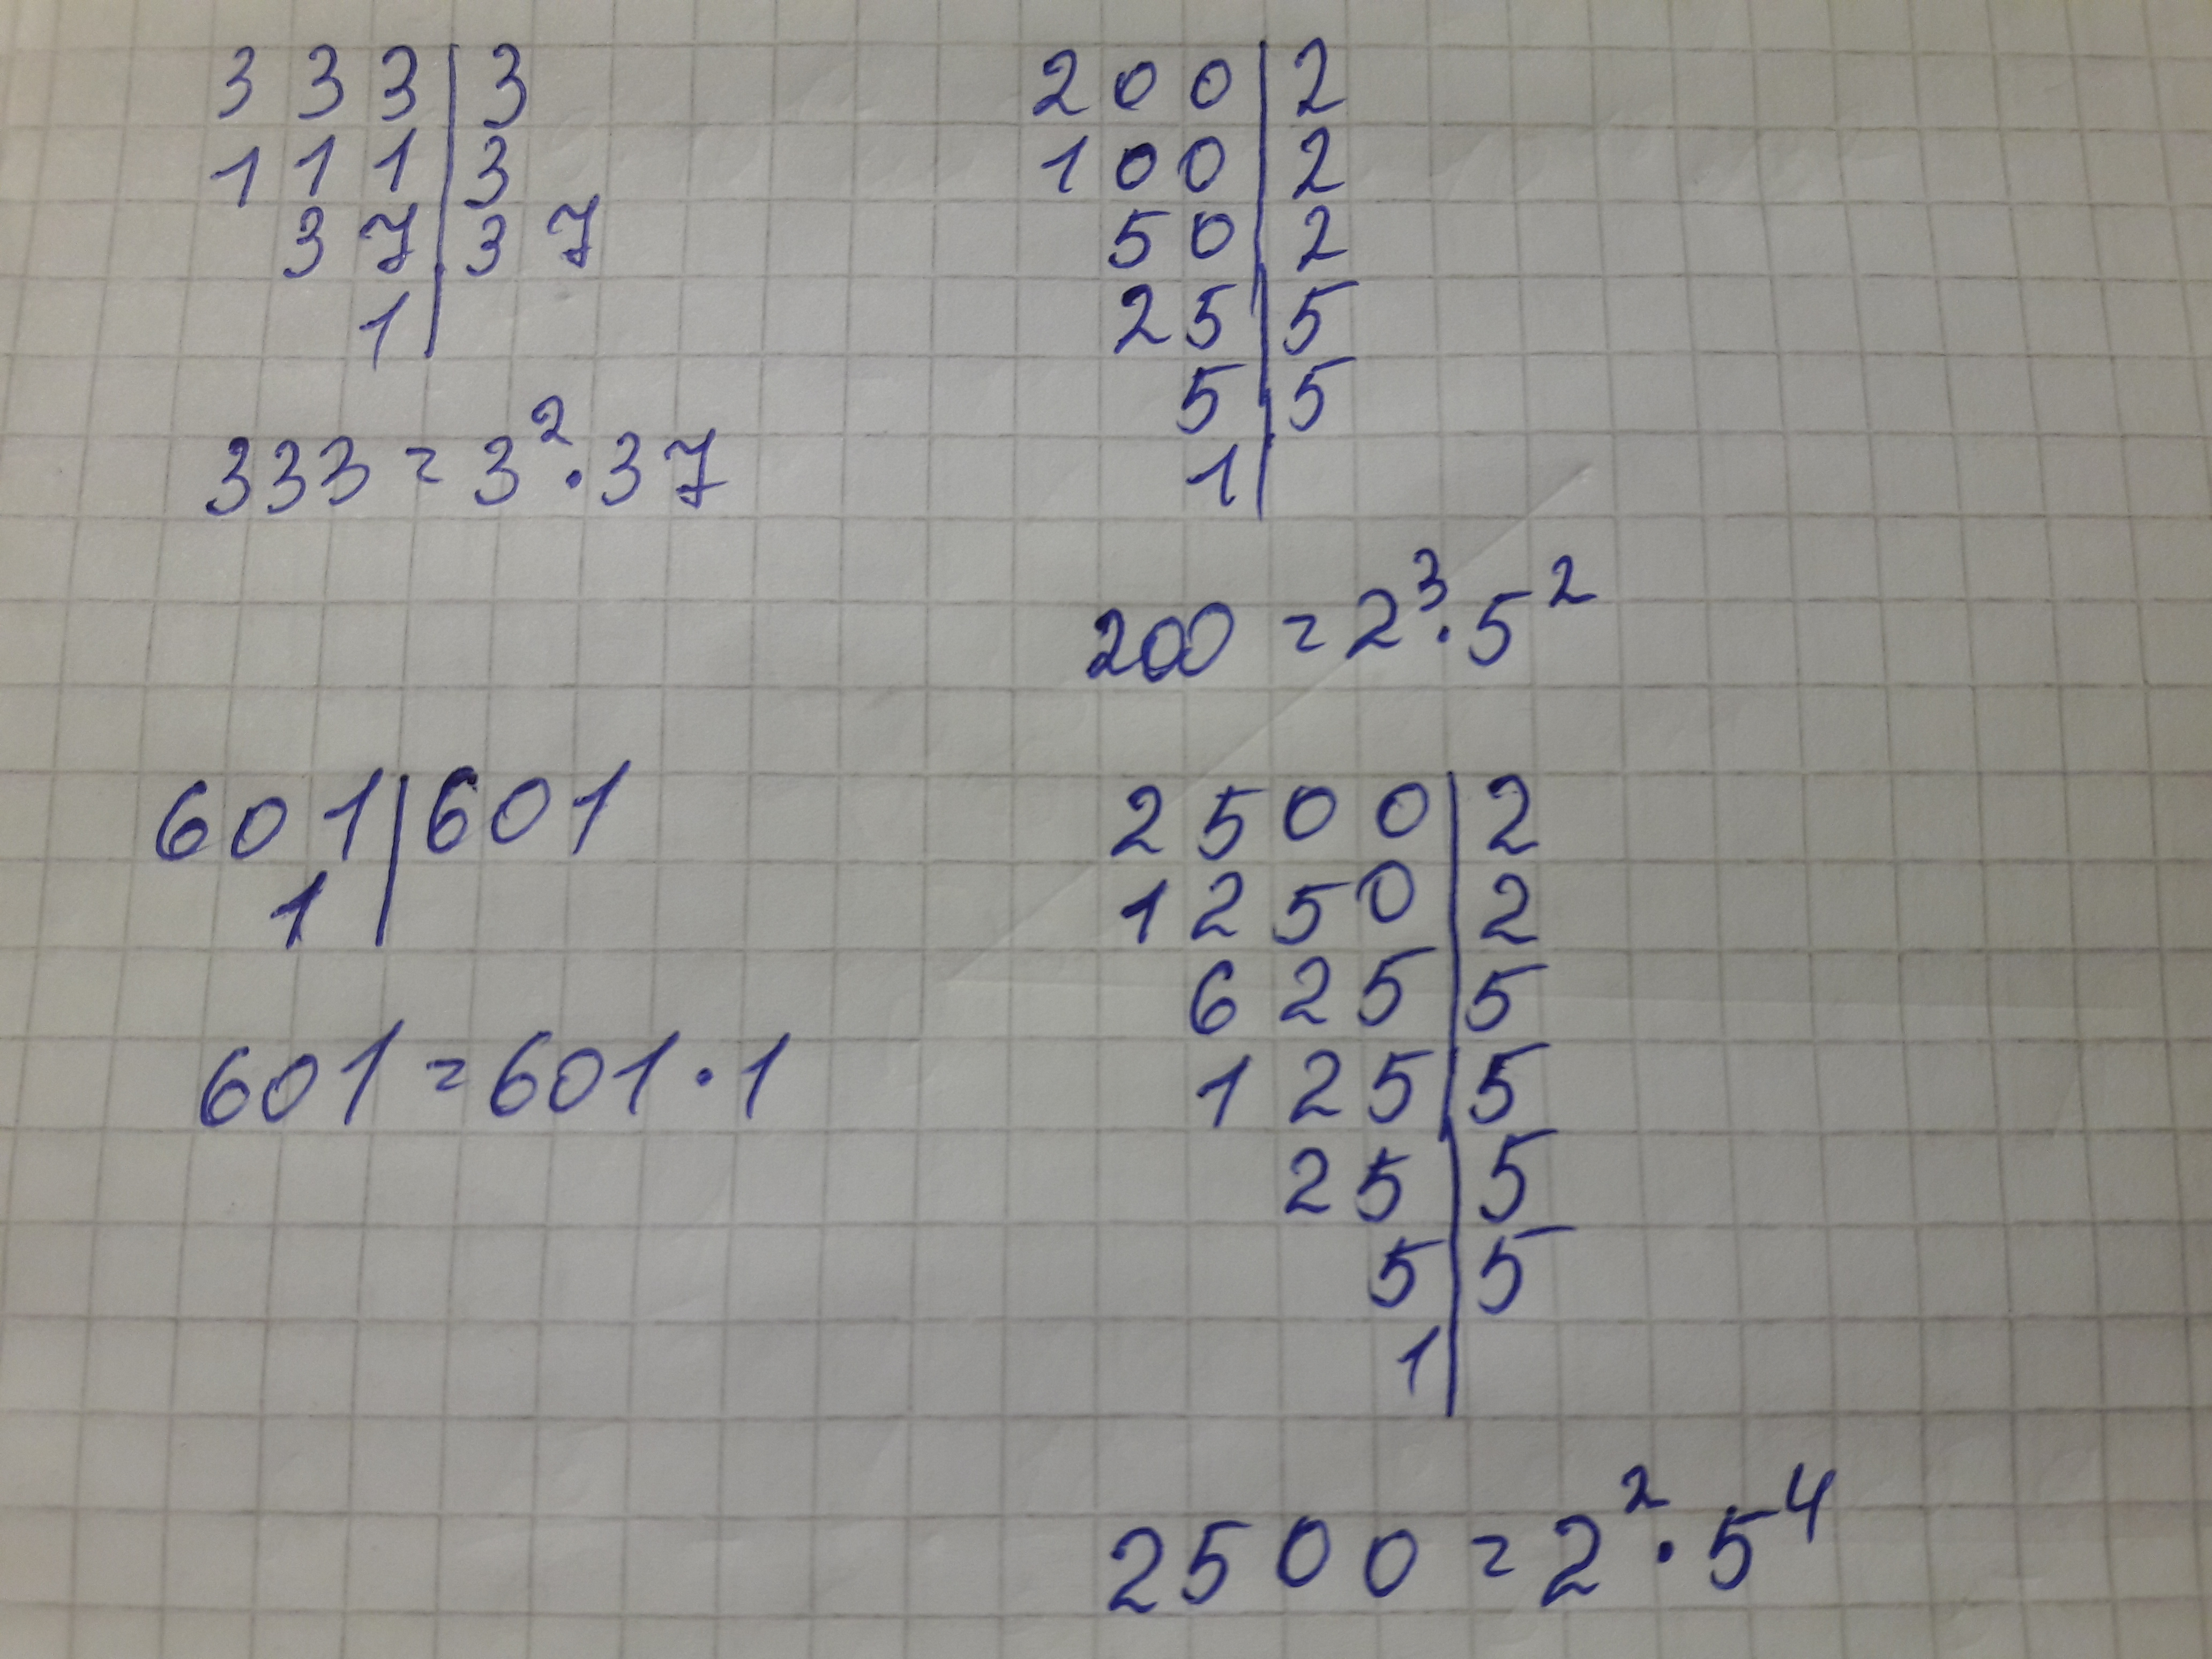 3 3 3 | 3
1 1 1 | 3
3 7 | 3 7
1 |
333 = 3² · 37
2 0 0 | 2
1 0 0 | 2
5 0 | 2
2 5 | 5
5 | 5
1 |
200 = 2³ · 5²
6 0 1 | 6 0 1
1 |
601 = 601 · 1
2 5 0 0 | 2
1 2 5 0 | 2
6 2 5 | 5
1 2 5 | 5
2 5 | 5
5 | 5
1 |
2500 = 2² · 5⁴